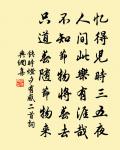 忆得儿时三五夜
人间此乐有涯哉
不知节物将愁去
只道愁随节物来
钱时灯夕有感二首词
典网集